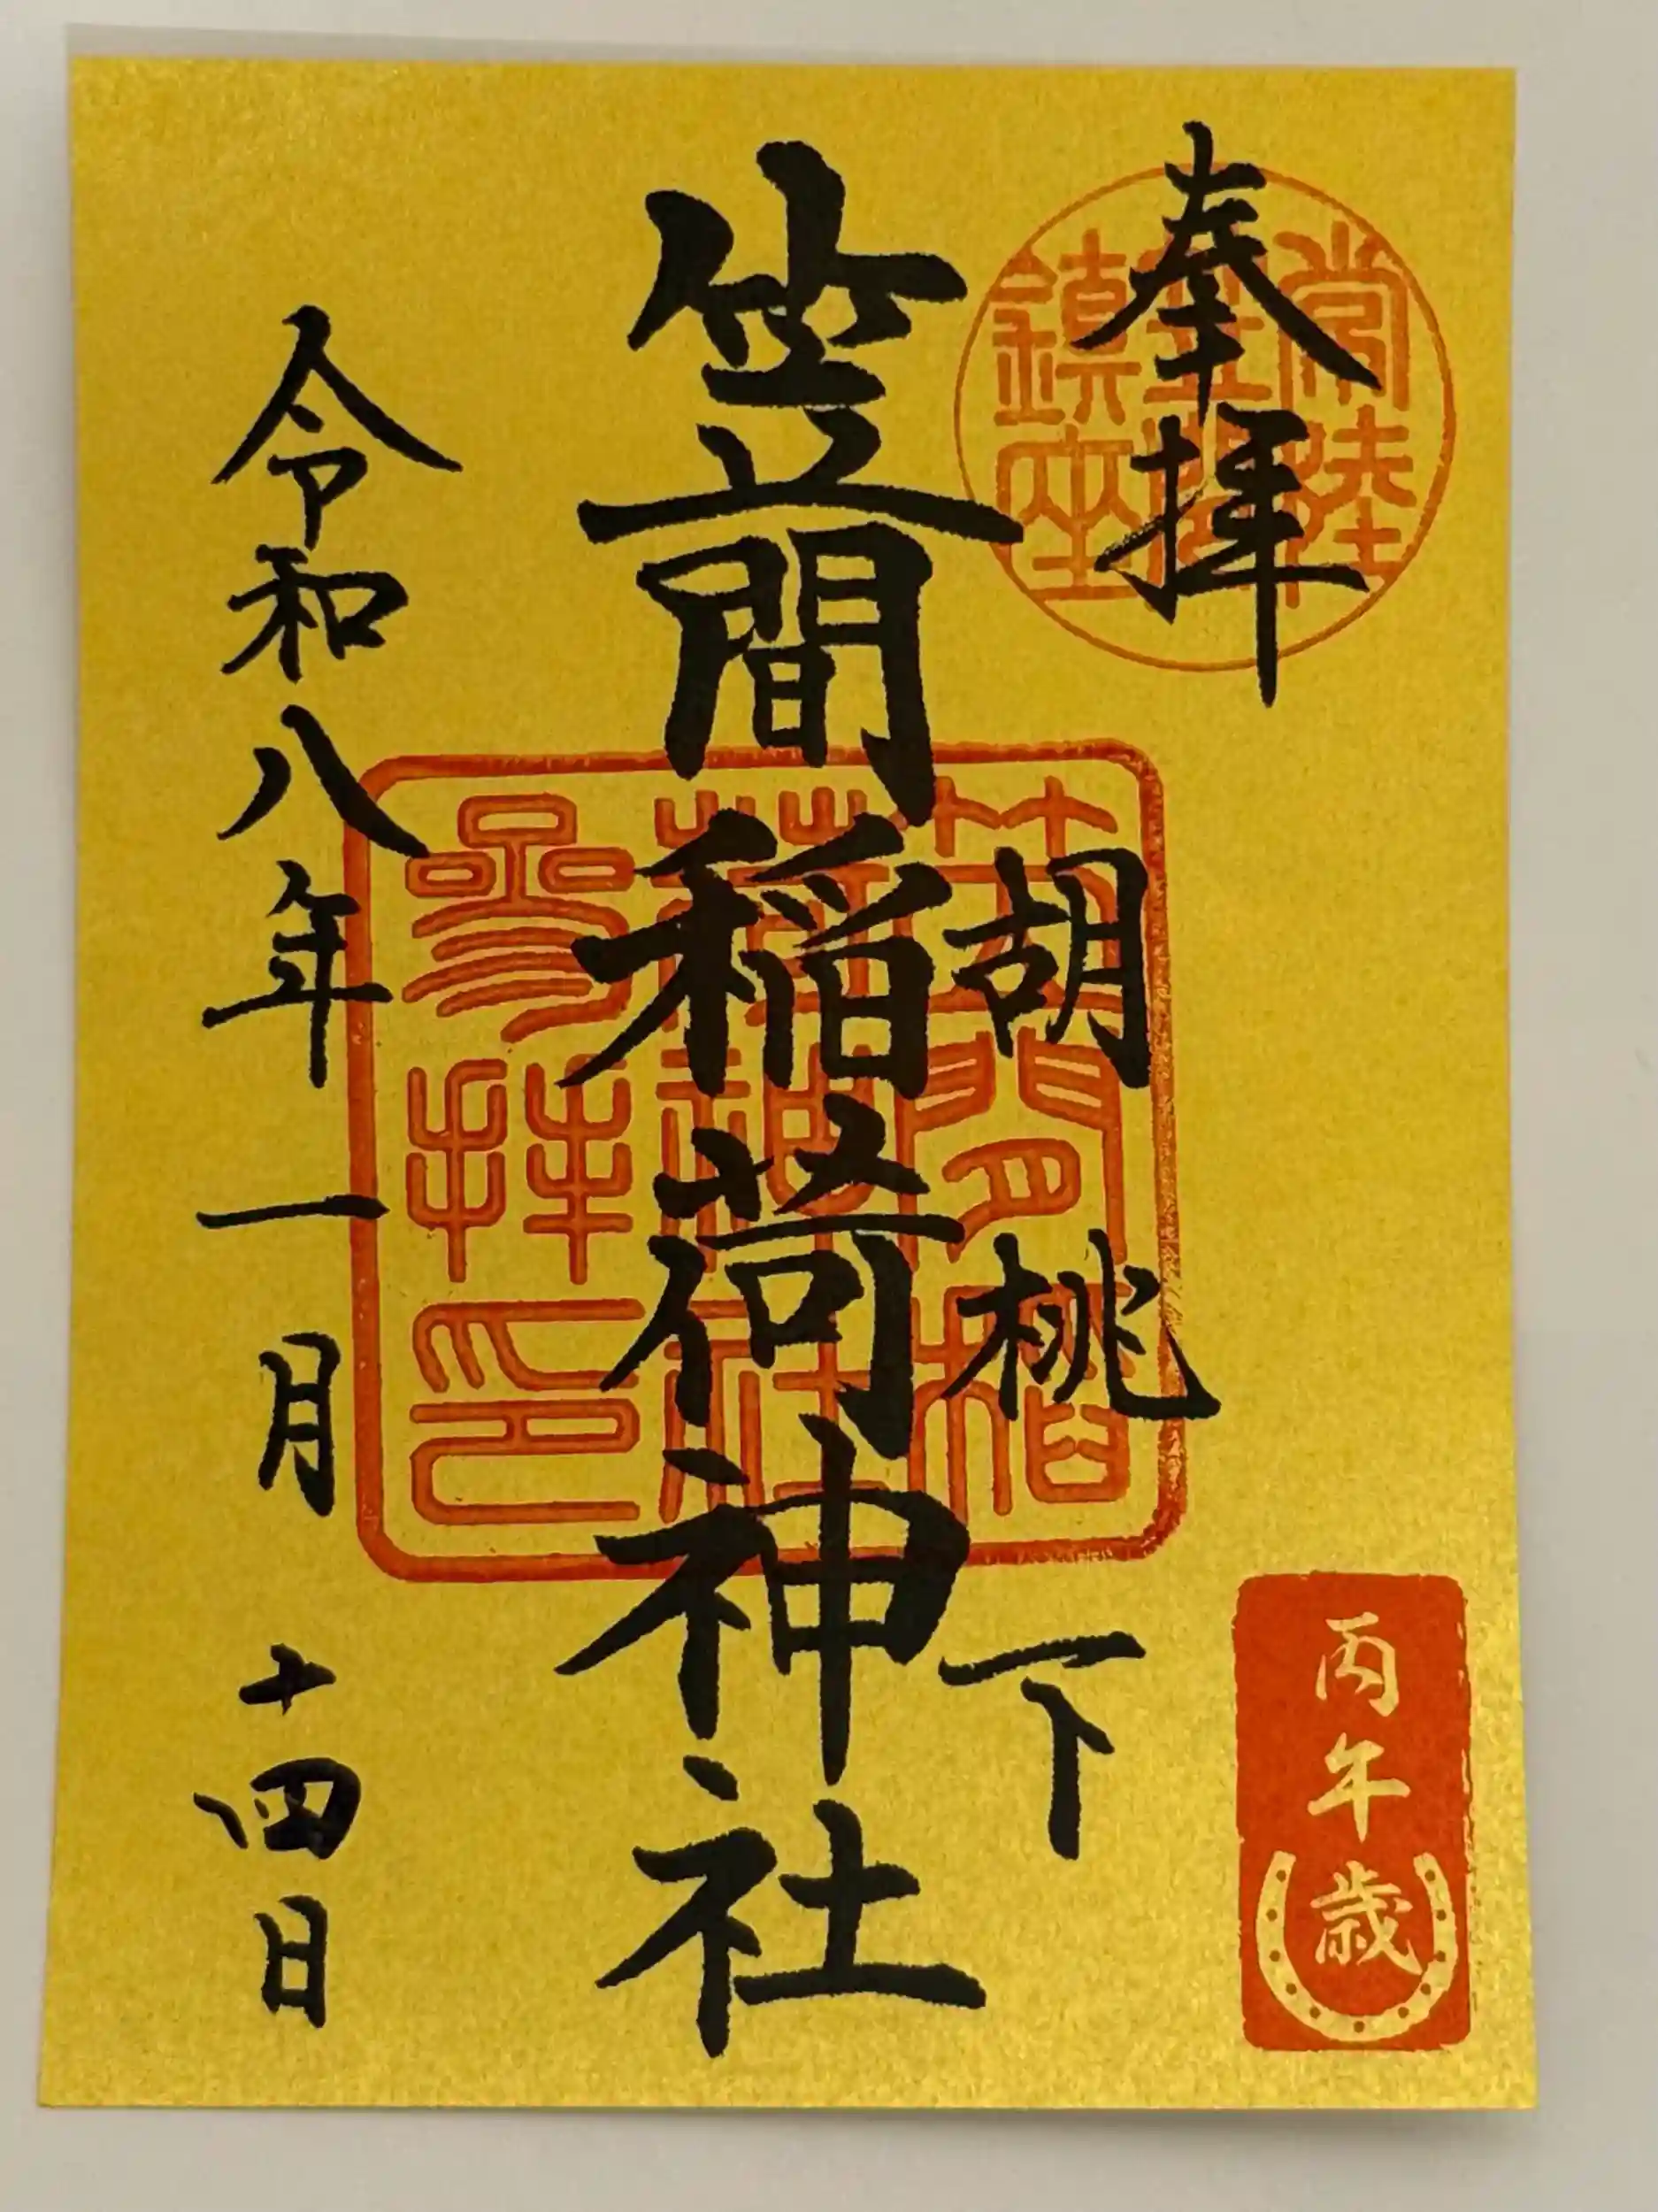 奉拝
常陸
鎮座
胡桃下
笠間稲荷神社
笠間稲
荷神社
参拝印
令和八年一月十四日
丙午歳